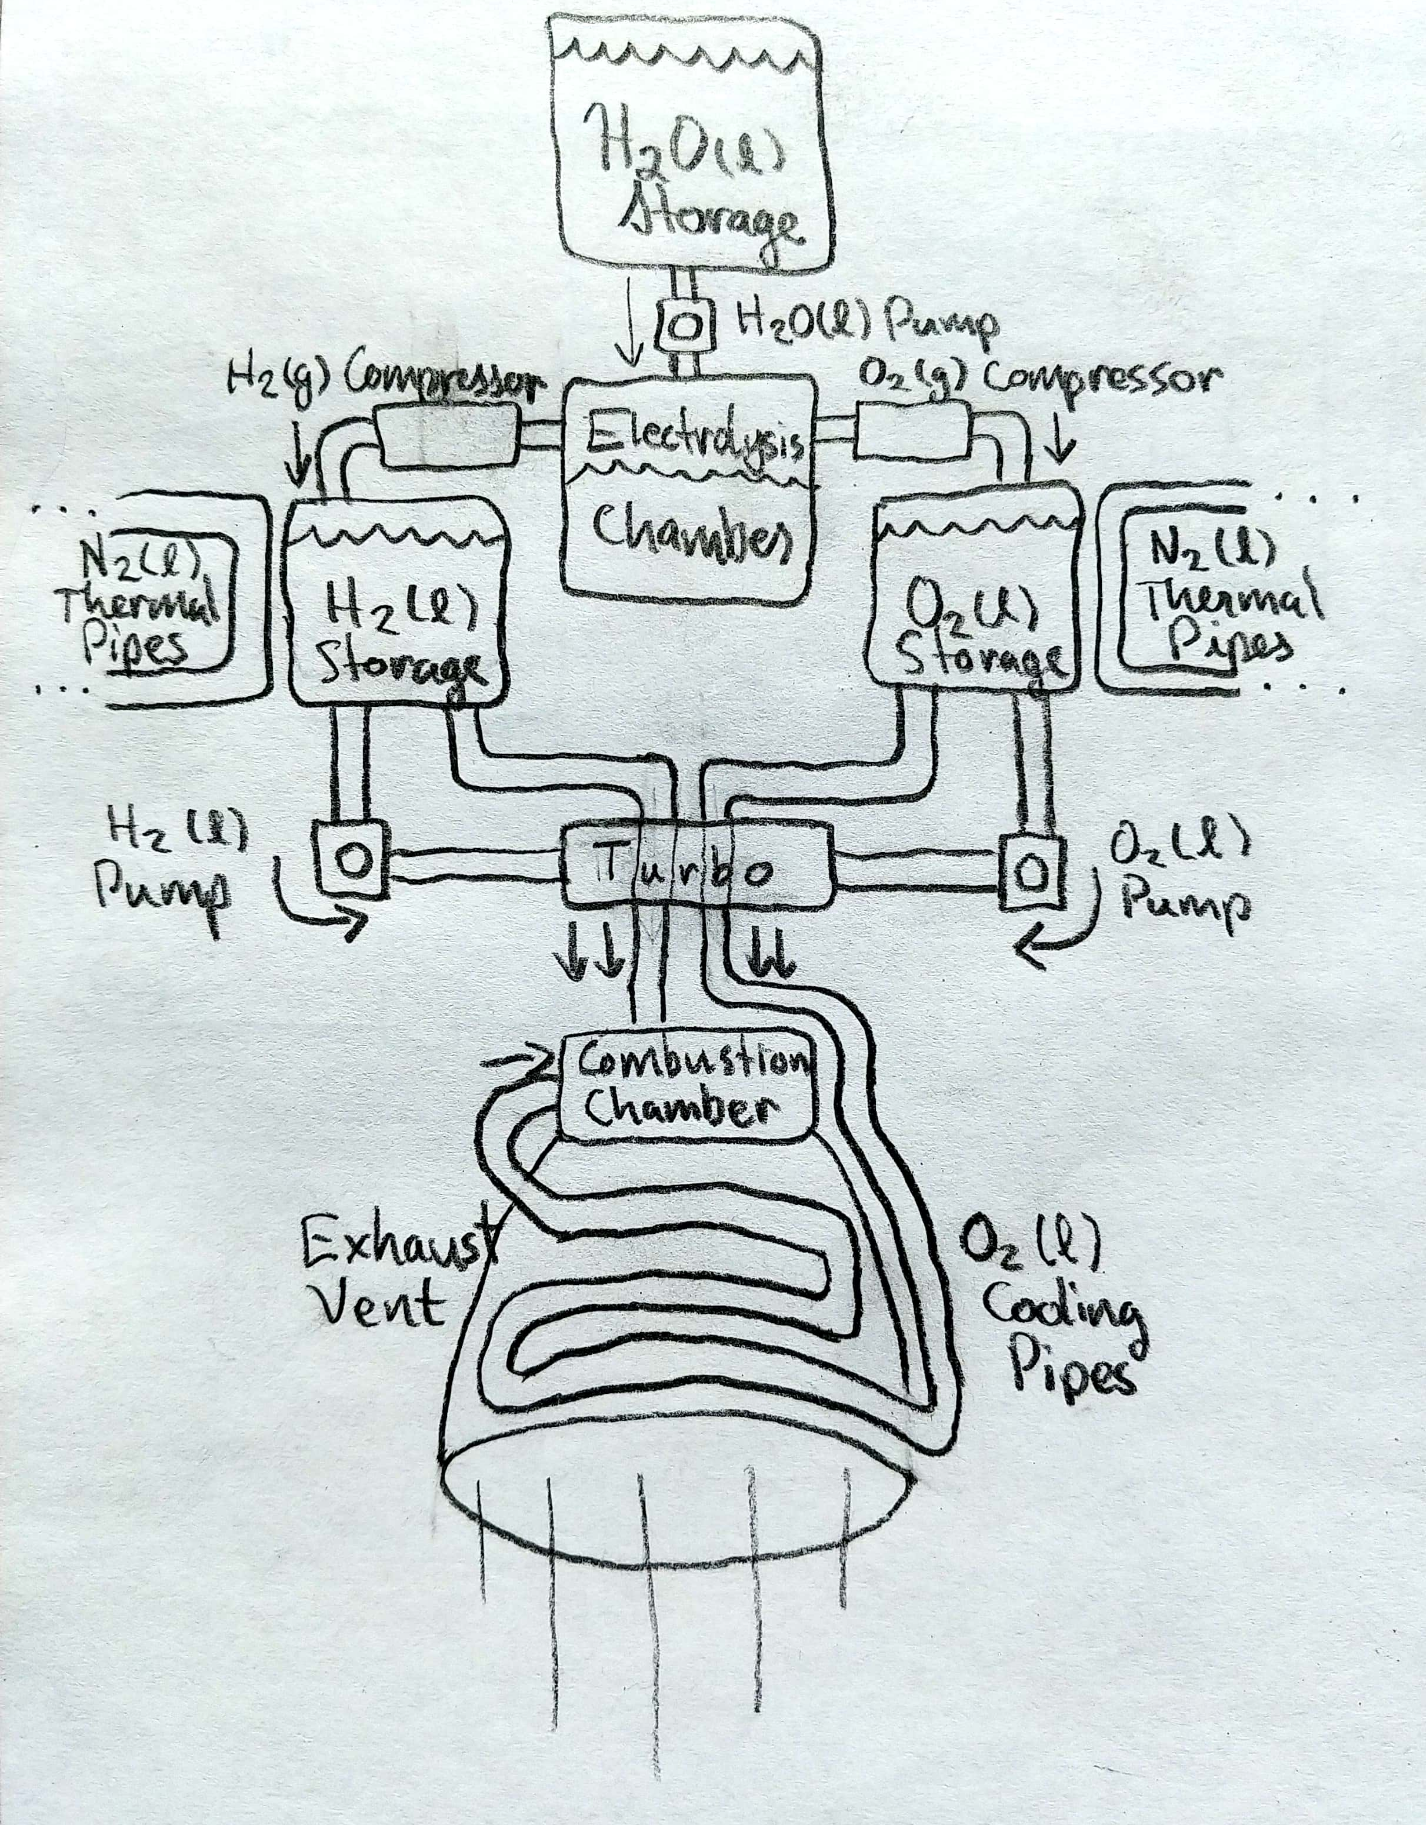 H₂O(l)
Storage
H₂O(l) Pump
H₂(g) Compressor
O₂(g) Compressor
Electrolysis
Chamber
N₂(l)
Thermal
Pipes
H₂(l)
Storage
O₂(l)
Storage
N₂(l)
Thermal
Pipes
H₂(l)
Pump
Turbo
O₂(l)
Pump
Combustion
Chamber
Exhaust
Vent
O₂(l)
Cooling
Pipes